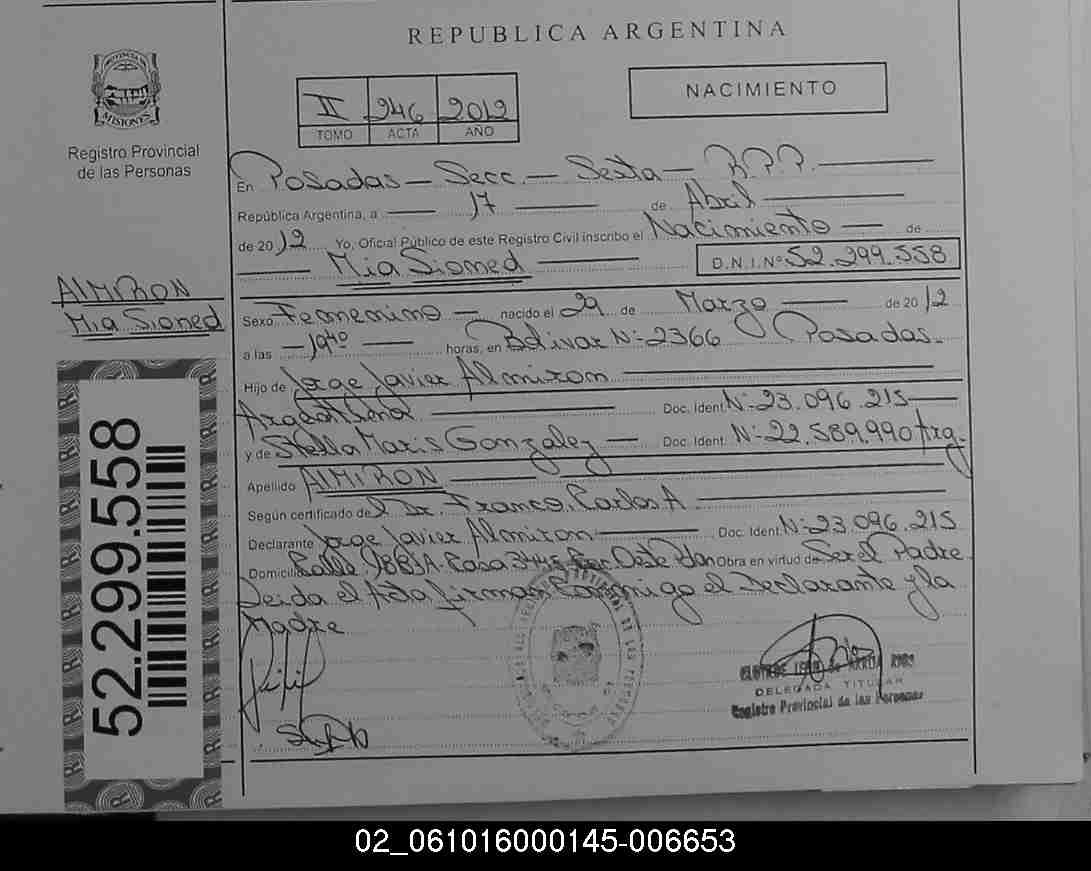 REPUBLICA ARGENTINA
PROVINCIA DE
MISIONES
Registro Provincial
de las Personas
II 246 2012
TOMO ACTA AÑO
NACIMIENTO
En Posadas - Secc. - Sexta - R.P.P.
República Argentina, a 17 de Abril
de 2012 Yo, Oficial Público de este Registro Civil inscribo el Nacimiento de
Mia Sioned D.N.I. Nº 52.299.558
ALMIRON
Mia Sioned
Sexo Femenino nacido el 29 de Marzo de 2012
a las 19 40 horas, en Bolivar Nº 2366 Posadas.
Hijo de Jorge Javier Almiron
Argentina Doc. Ident. Nº 23.096.215
y de Stella Maris Gonzalez Doc. Ident. Nº 22.589.990 Arg.
Apellido ALMIRON
Según certificado del Dr. Franco, Carlos A
Declarante Jorge Javier Almiron Doc. Ident. Nº 23.096.215
Domicilio Calle Casa 3445 Oeste Obra en virtud de Ser el Padre
Leida el Acta firman Conmigo el Declarante y la
Madre
DELEGADA TITULAR
Registro Provincial de las Personas
52.299.558
02_061016000145-006653